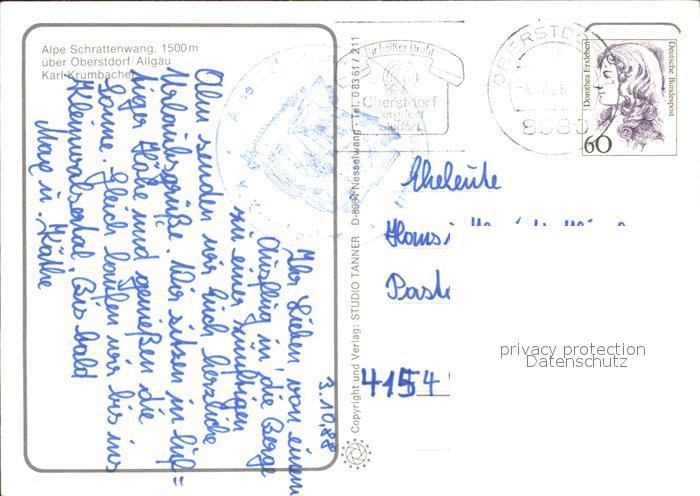 Alpe Schrattenwang, 1500m
über Oberstdorf/Allgäu
Karl Krumbacher
3.10.88
Ihr Lieben, von einem
Ausflug in die Berge
zu einer zünftigen
Alm senden wir Euch herzliche
Urlaubsgrüße. Wir sitzen in luf=
tiger Höhe und genießen die
Sonne. Gleich laufen wir bis ins
Kleinwalsertal. Bis bald
Max u. Käthe
Copyright und Verlag: STUDIO TANNER D-8964 Nesselwang · Tel. 08361/211
Ihr heißer Draht
Oberstdorf
OBERSTDORF
8980
Dorothea Erxleben
Deutsche Bundespost
60
Eheleute
Hans
4154
privacy protection
Datenschutz